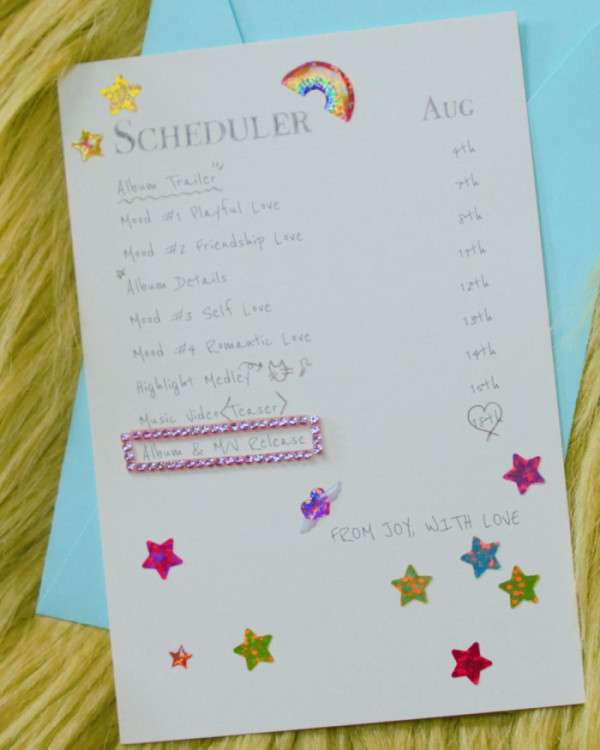 SCHEDULER AUG
Album Trailer 4th
Mood #1 Playful Love 7th
Mood #2 Friendship Love 8th
Album Details 11th
Mood #3 Self Love 12th
Mood #4 Romantic Love 13th
Highlight Medley 14th
Music Video <Teaser> 15th
Album & M/V Release 18th
FROM JOY, WITH LOVE